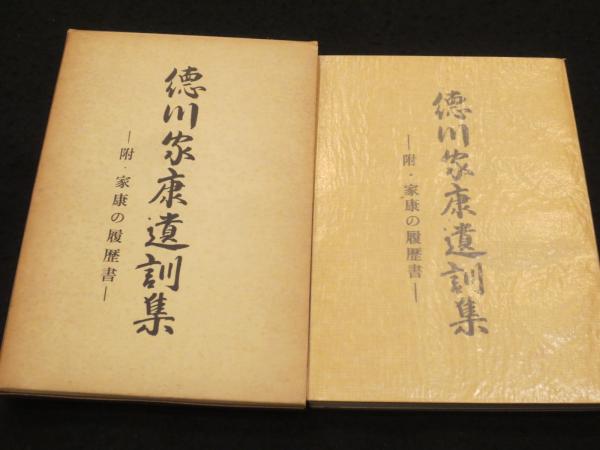 徳川家康遺訓集
―附・家康の履歴書―
徳川家康遺訓集
―附・家康の履歴書―